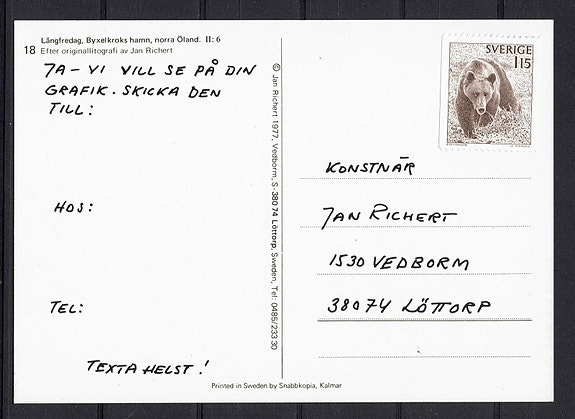 Långfredag, Byxelkroks hamn, norra Öland. II: 6
18 Efter originallitografi av Jan Richert
JA - VI VILL SE PÅ DIN
GRAFIK. SKICKA DEN
TILL:
HOS:
TEL:
TEXTA HELST!
© Jan Richert 1977, Vedborm, S-380 74 Löttorp, Sweden, Tel: 0485/233 30
SVERIGE
115
KONSTNÄR
JAN RICHERT
1530 VEDBORM
38074 LÖTTORP
Printed in Sweden by Snabbkopia, Kalmar